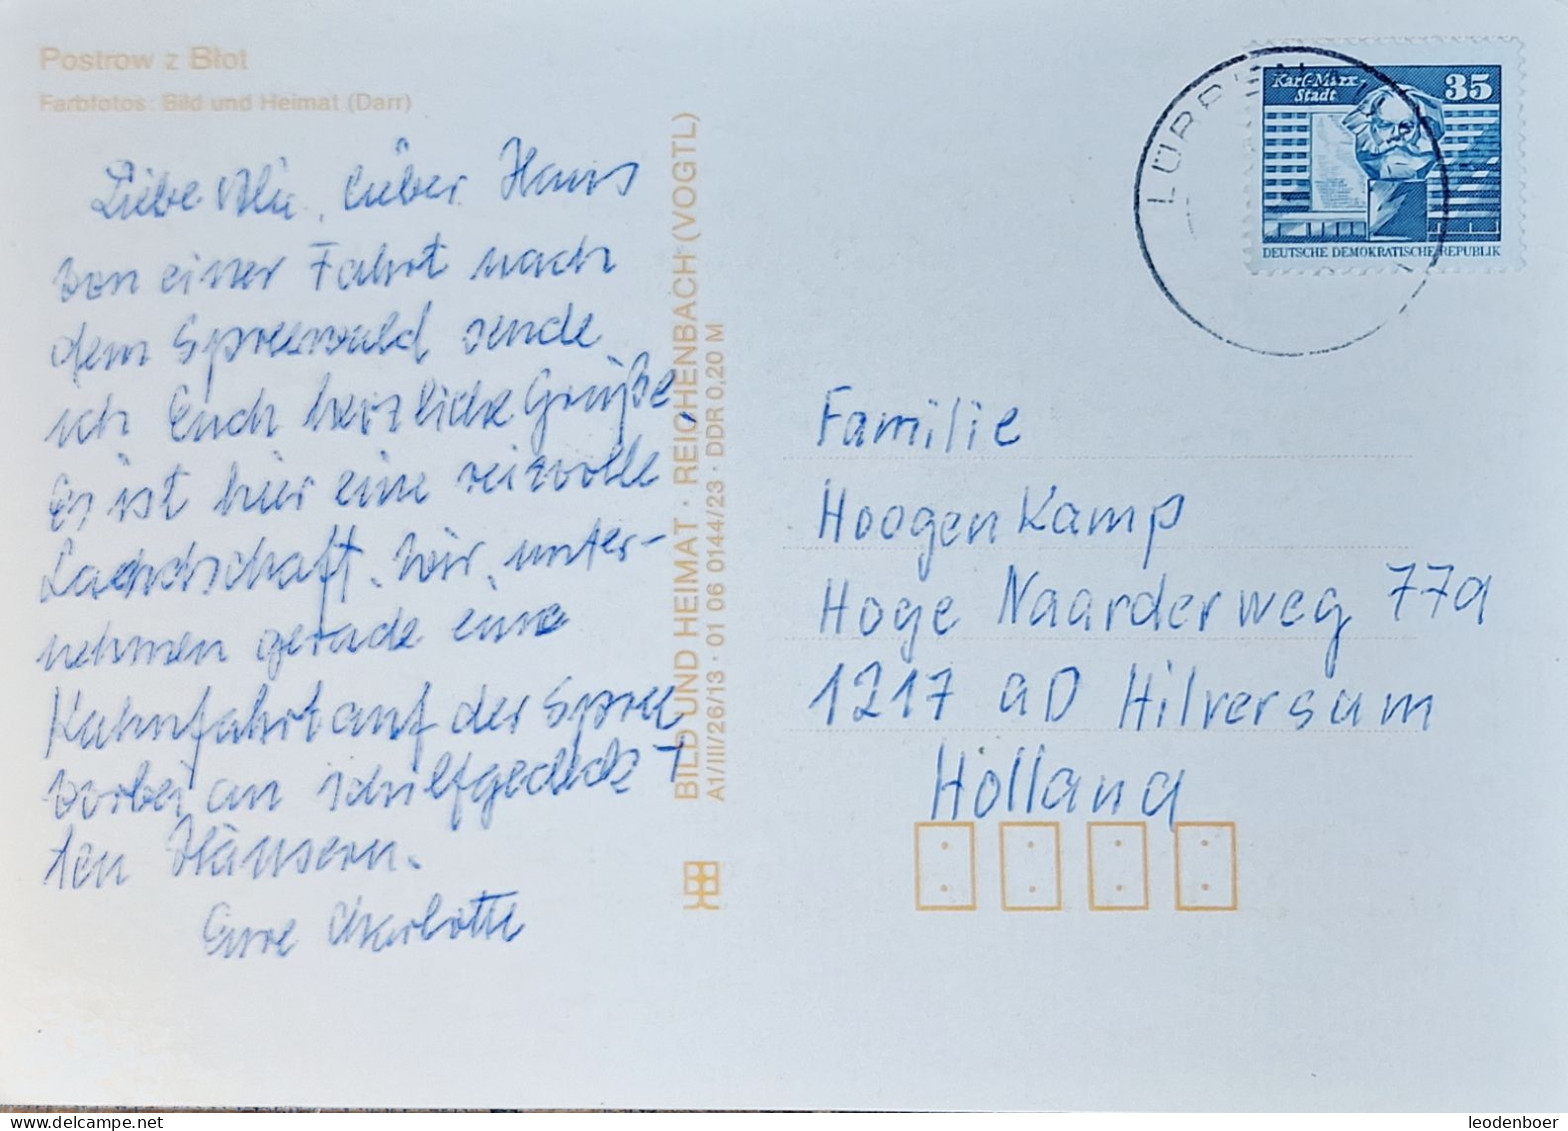 Postrow z Błot
Farbfotos: Bild und Heimat (Darr)
Liebe Ali, lieber Hans
von einer Fahrt nach
dem Spreewald sende
ich Euch herzliche Grüße.
Es ist hier eine reizvolle
Landschaft. Wir unter-
nehmen gerade eine
Kahnfahrt auf der Spree
vorbei an schilfgedeck-
ten Häusern.
Eure Charlotte
BILD UND HEIMAT · REICHENBACH (VOGTL)
A1/III/26/13 · 01 06 0144/23 · DDR 0,20 M
Karl-Marx-
Stadt
35
DEUTSCHE DEMOKRATISCHE REPUBLIK
Familie
Hoogenkamp
Hoge Naarderweg 77a
1217 aD Hilversum
Holland
leodenboer